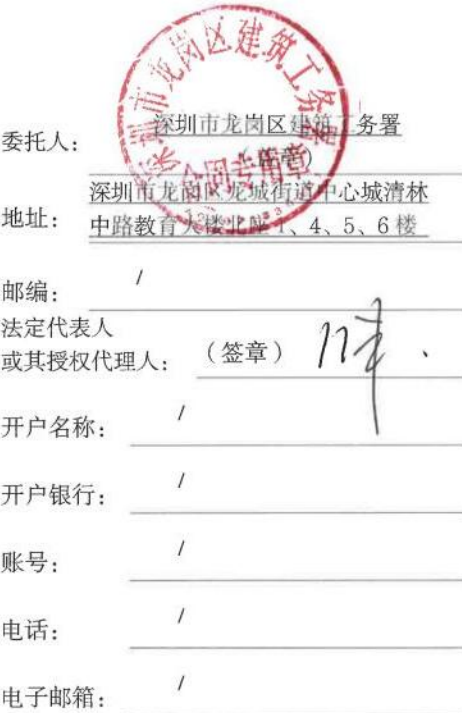 深圳市龙岗区建筑工务署
合同专用章
委托人: 深圳市龙岗区建筑工务署
(盖章)
地址: 深圳市龙岗区龙城街道中心城清林
中路教育大楼北座 1、4、5、6 楼
邮编: /
法定代表人
或其授权代理人: (签章)
开户名称: /
开户银行: /
账号: /
电话: /
电子邮箱: /